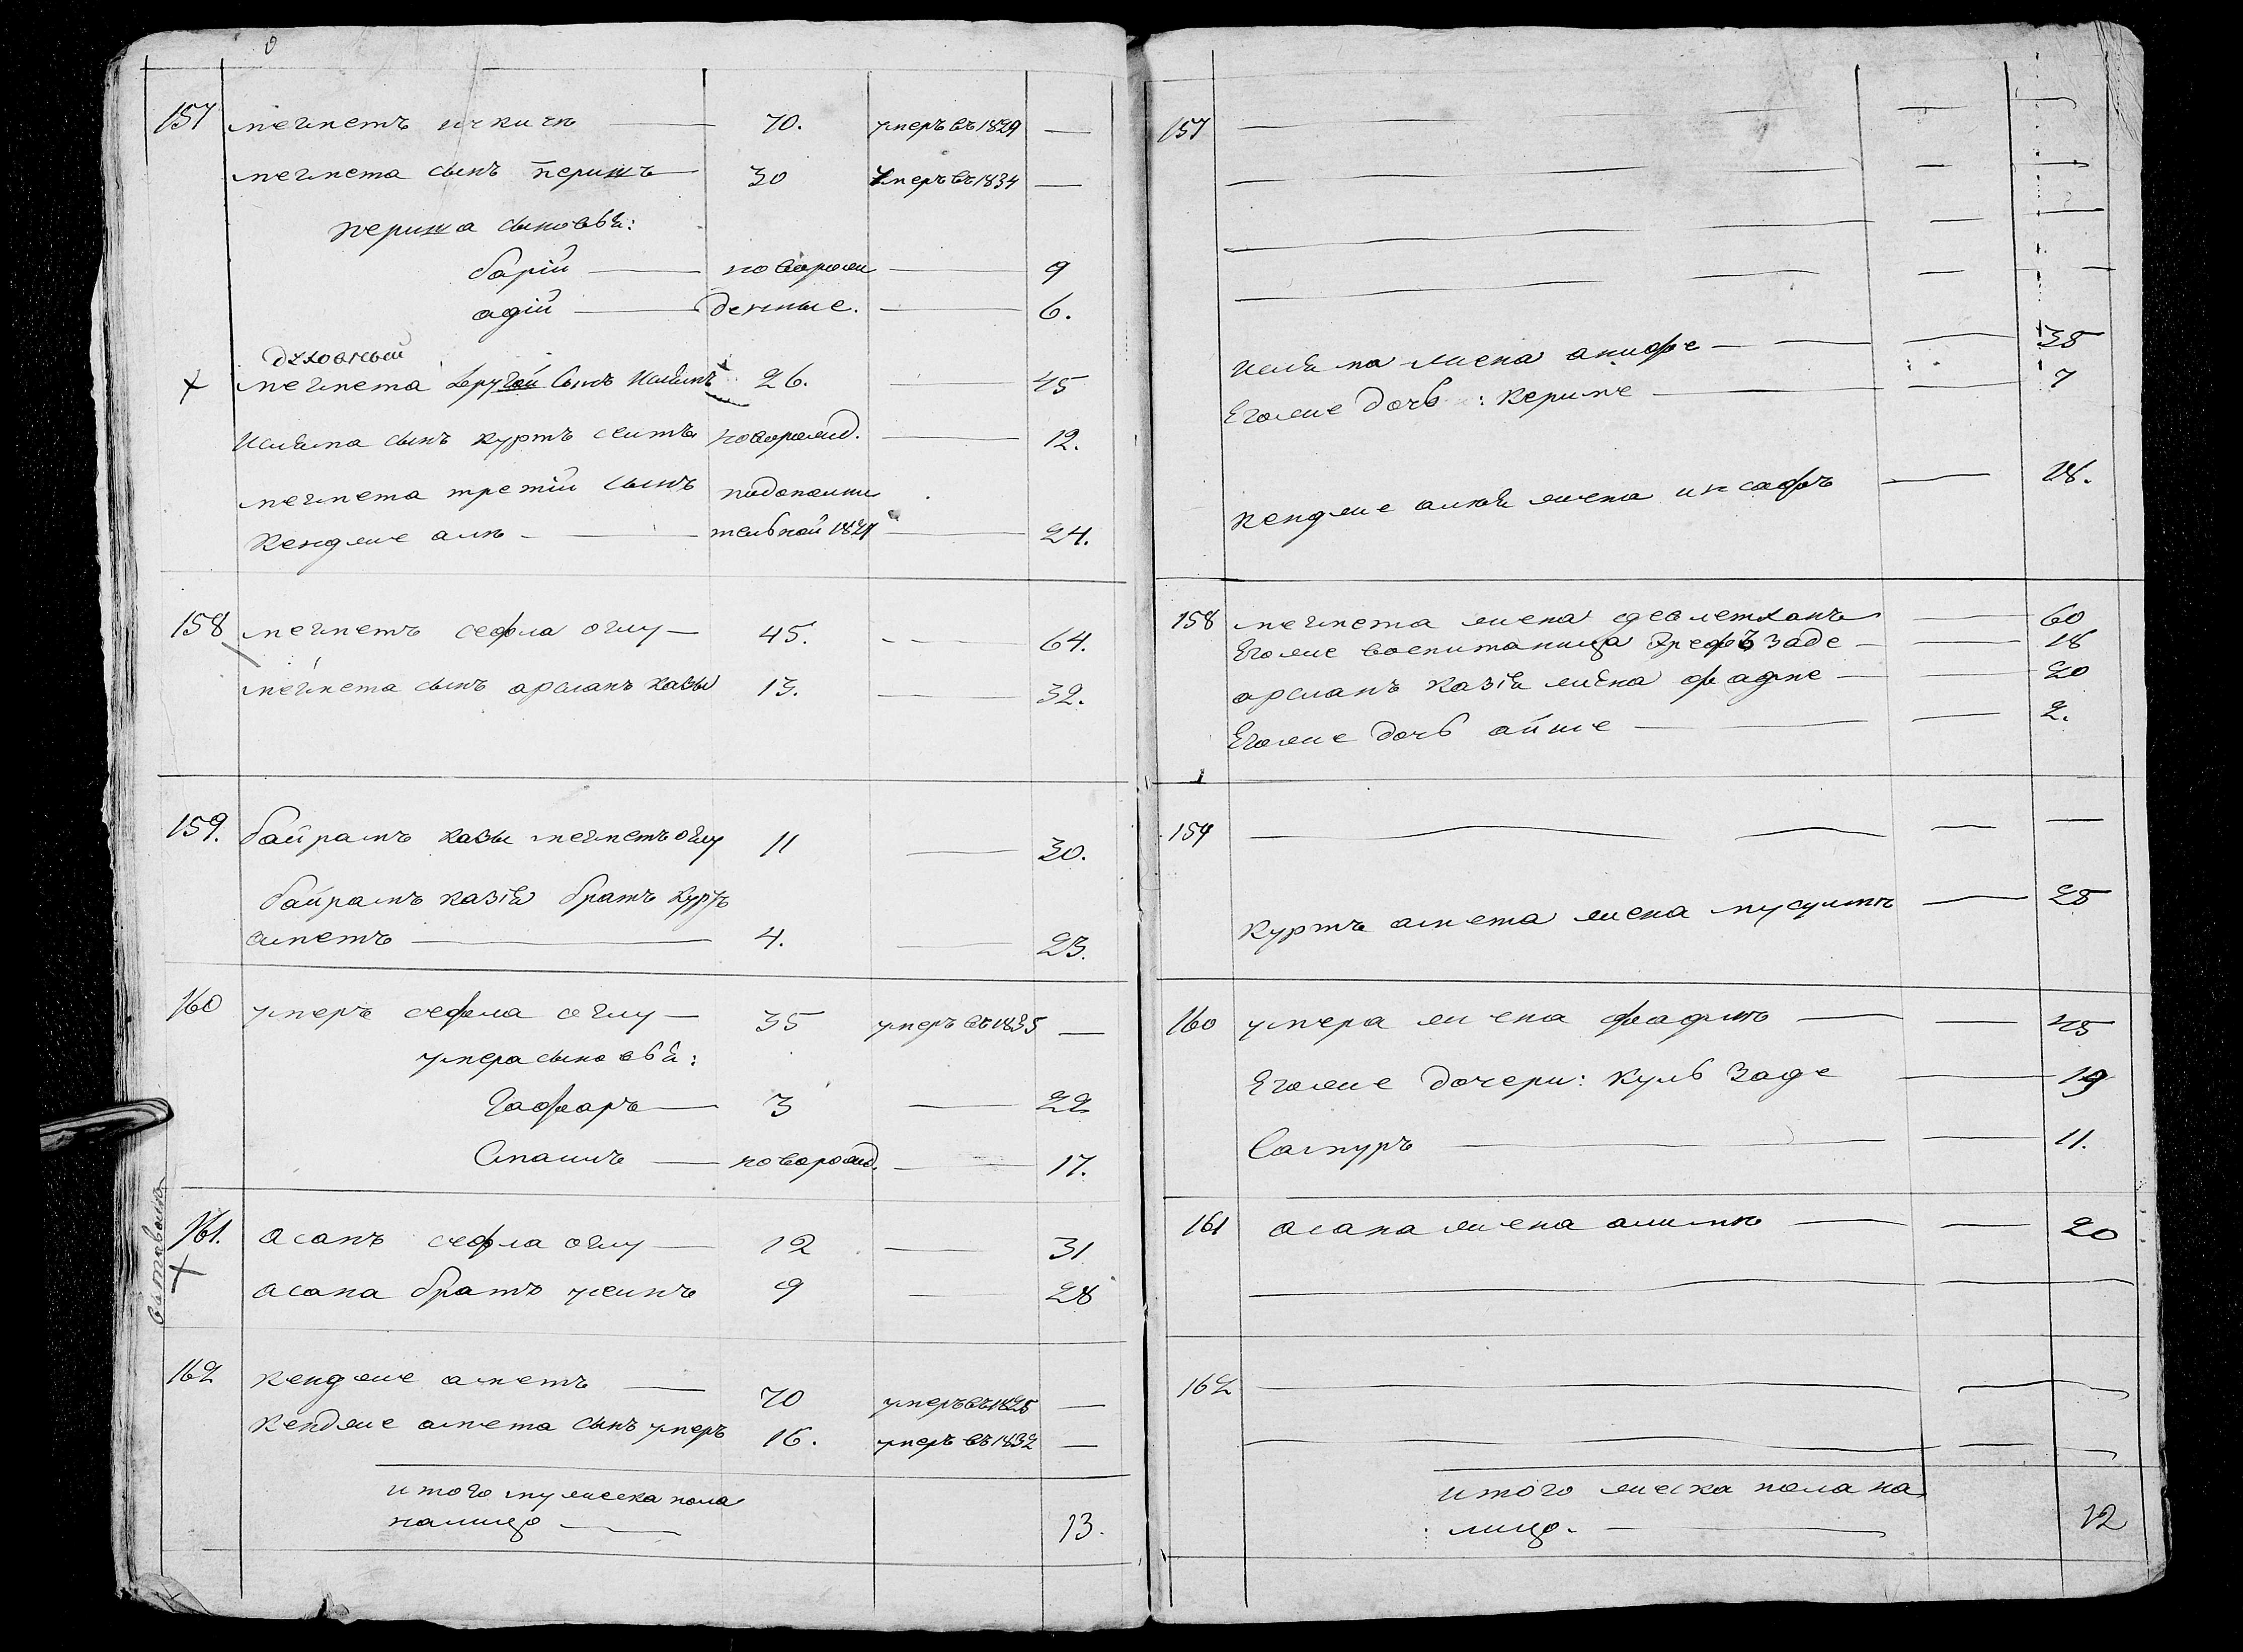 157 мегметъ 70. умеръ въ 1829 —
мегмета сынъ керимъ 30 Умеръ въ 1834 —
керима сыновья:
барій — новорож 9
адій — денные. 6.
духовный
мегмета другой сынъ Ислямъ 26. — 45
Исляма сынъ куртъ сеитъ новорожд. — 12.
мегмета третій сынъ
Кендже али — 24.
158 мегметъ сефла оглу — 45. — 64.
мегмета сынъ арсланъ казы 13. — 32.
159. байрамъ казы мегметъ оглу 11 — 30.
байрамъ казія братъ куртъ
аметъ — 4. — 23.
160 умеръ сефла оглу — 35 умеръ въ 1835 —
умера сыновья:
Гафаръ — 3 — 22
Смаилъ — новорожд. — 17.
161. асанъ сефла оглу — 12 — 31
асана братъ усеинъ 9 — 28
162 кендже аметъ — 70 умеръ въ 1825 —
Кендже амета сынъ умеръ 16. умеръ въ 1832 —
итого мужеска пола
налицо — 13.
157
Исляма жена анифе — 35
Егоже дочь: Кериме — 7
Кендже алія жена инсафъ — 18.
158 мегмета жена девлетханъ — 60
Егоже воспитаница заде — 18
арсланъ казія жена фадме — 20
Егоже дочь айше — 2.
159
Куртъ амета жена — 25
160 умера жена фадимъ — 45
Егоже дочери: Куль Заде — 19
— 11.
161 асана жена — 20
162
итого женска пола на
лицо. — 12